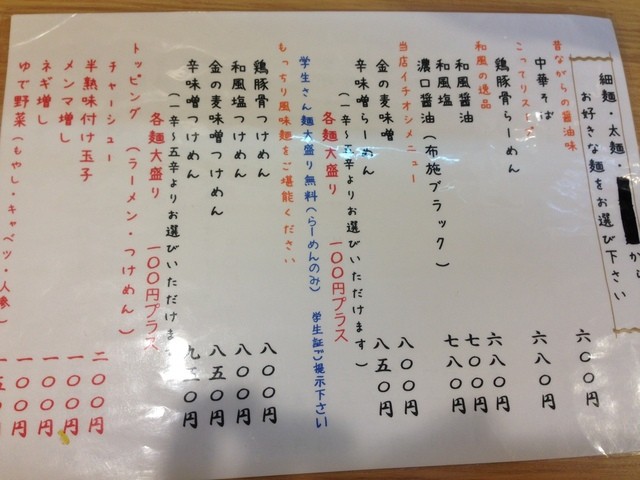 細麺・太麺・から
お好きな麺をお選び下さい
昔ながらの醤油味
中華そば 六〇〇円
鶏豚骨らーめん 六八〇円
和風の逸品
和風醤油 六八〇円
和風塩 七〇〇円
濃口醤油(布施ブラック) 七八〇円
当店イチオシメニュー
金の麦味噌 八〇〇円
辛味噌らーめん 八五〇円
(一辛〜五辛よりお選びいただけます)
各麺大盛り 一〇〇円プラス
学生さん麺大盛り無料(らーめんのみ) 学生証ご提示下さい
もっちり風味麺をご堪能ください
鶏豚骨つけめん 八〇〇円
和風塩つけめん 八〇〇円
金の麦味噌つけめん 八五〇円
辛味噌つけめん 九五〇円
(一辛〜五辛よりお選びいただけます)
各麺大盛り 一〇〇円プラス
トッピング (ラーメン・つけめん)
チャーシュー 二〇〇円
半熟味付け玉子 一〇〇円
メンマ増し 一〇〇円
ネギ増し 一〇〇円
ゆで野菜(もやし・キャベツ・人参)